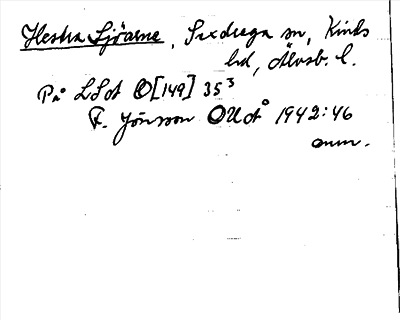 Hestra Sjöarne, Sexdrega sn, Kinds
hd, Älvsb. l.
På LSA O[149] 35³
F. Jonsson OUÅ 1942:46
anm.